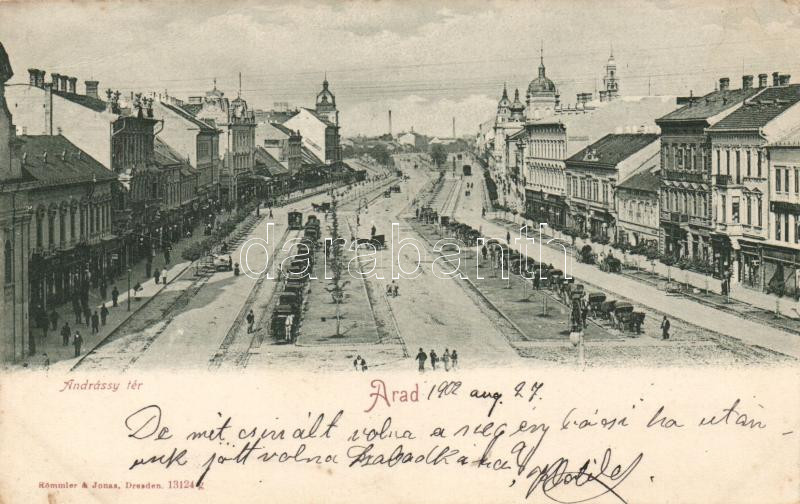 darabanth
Andrássy tér
Arad 1902 aug. 27.
De mit csinált volna a szegény bácsi ha után-
unk jött volna Szabadkára?
Römmler & Jonas, Dresden. 13124